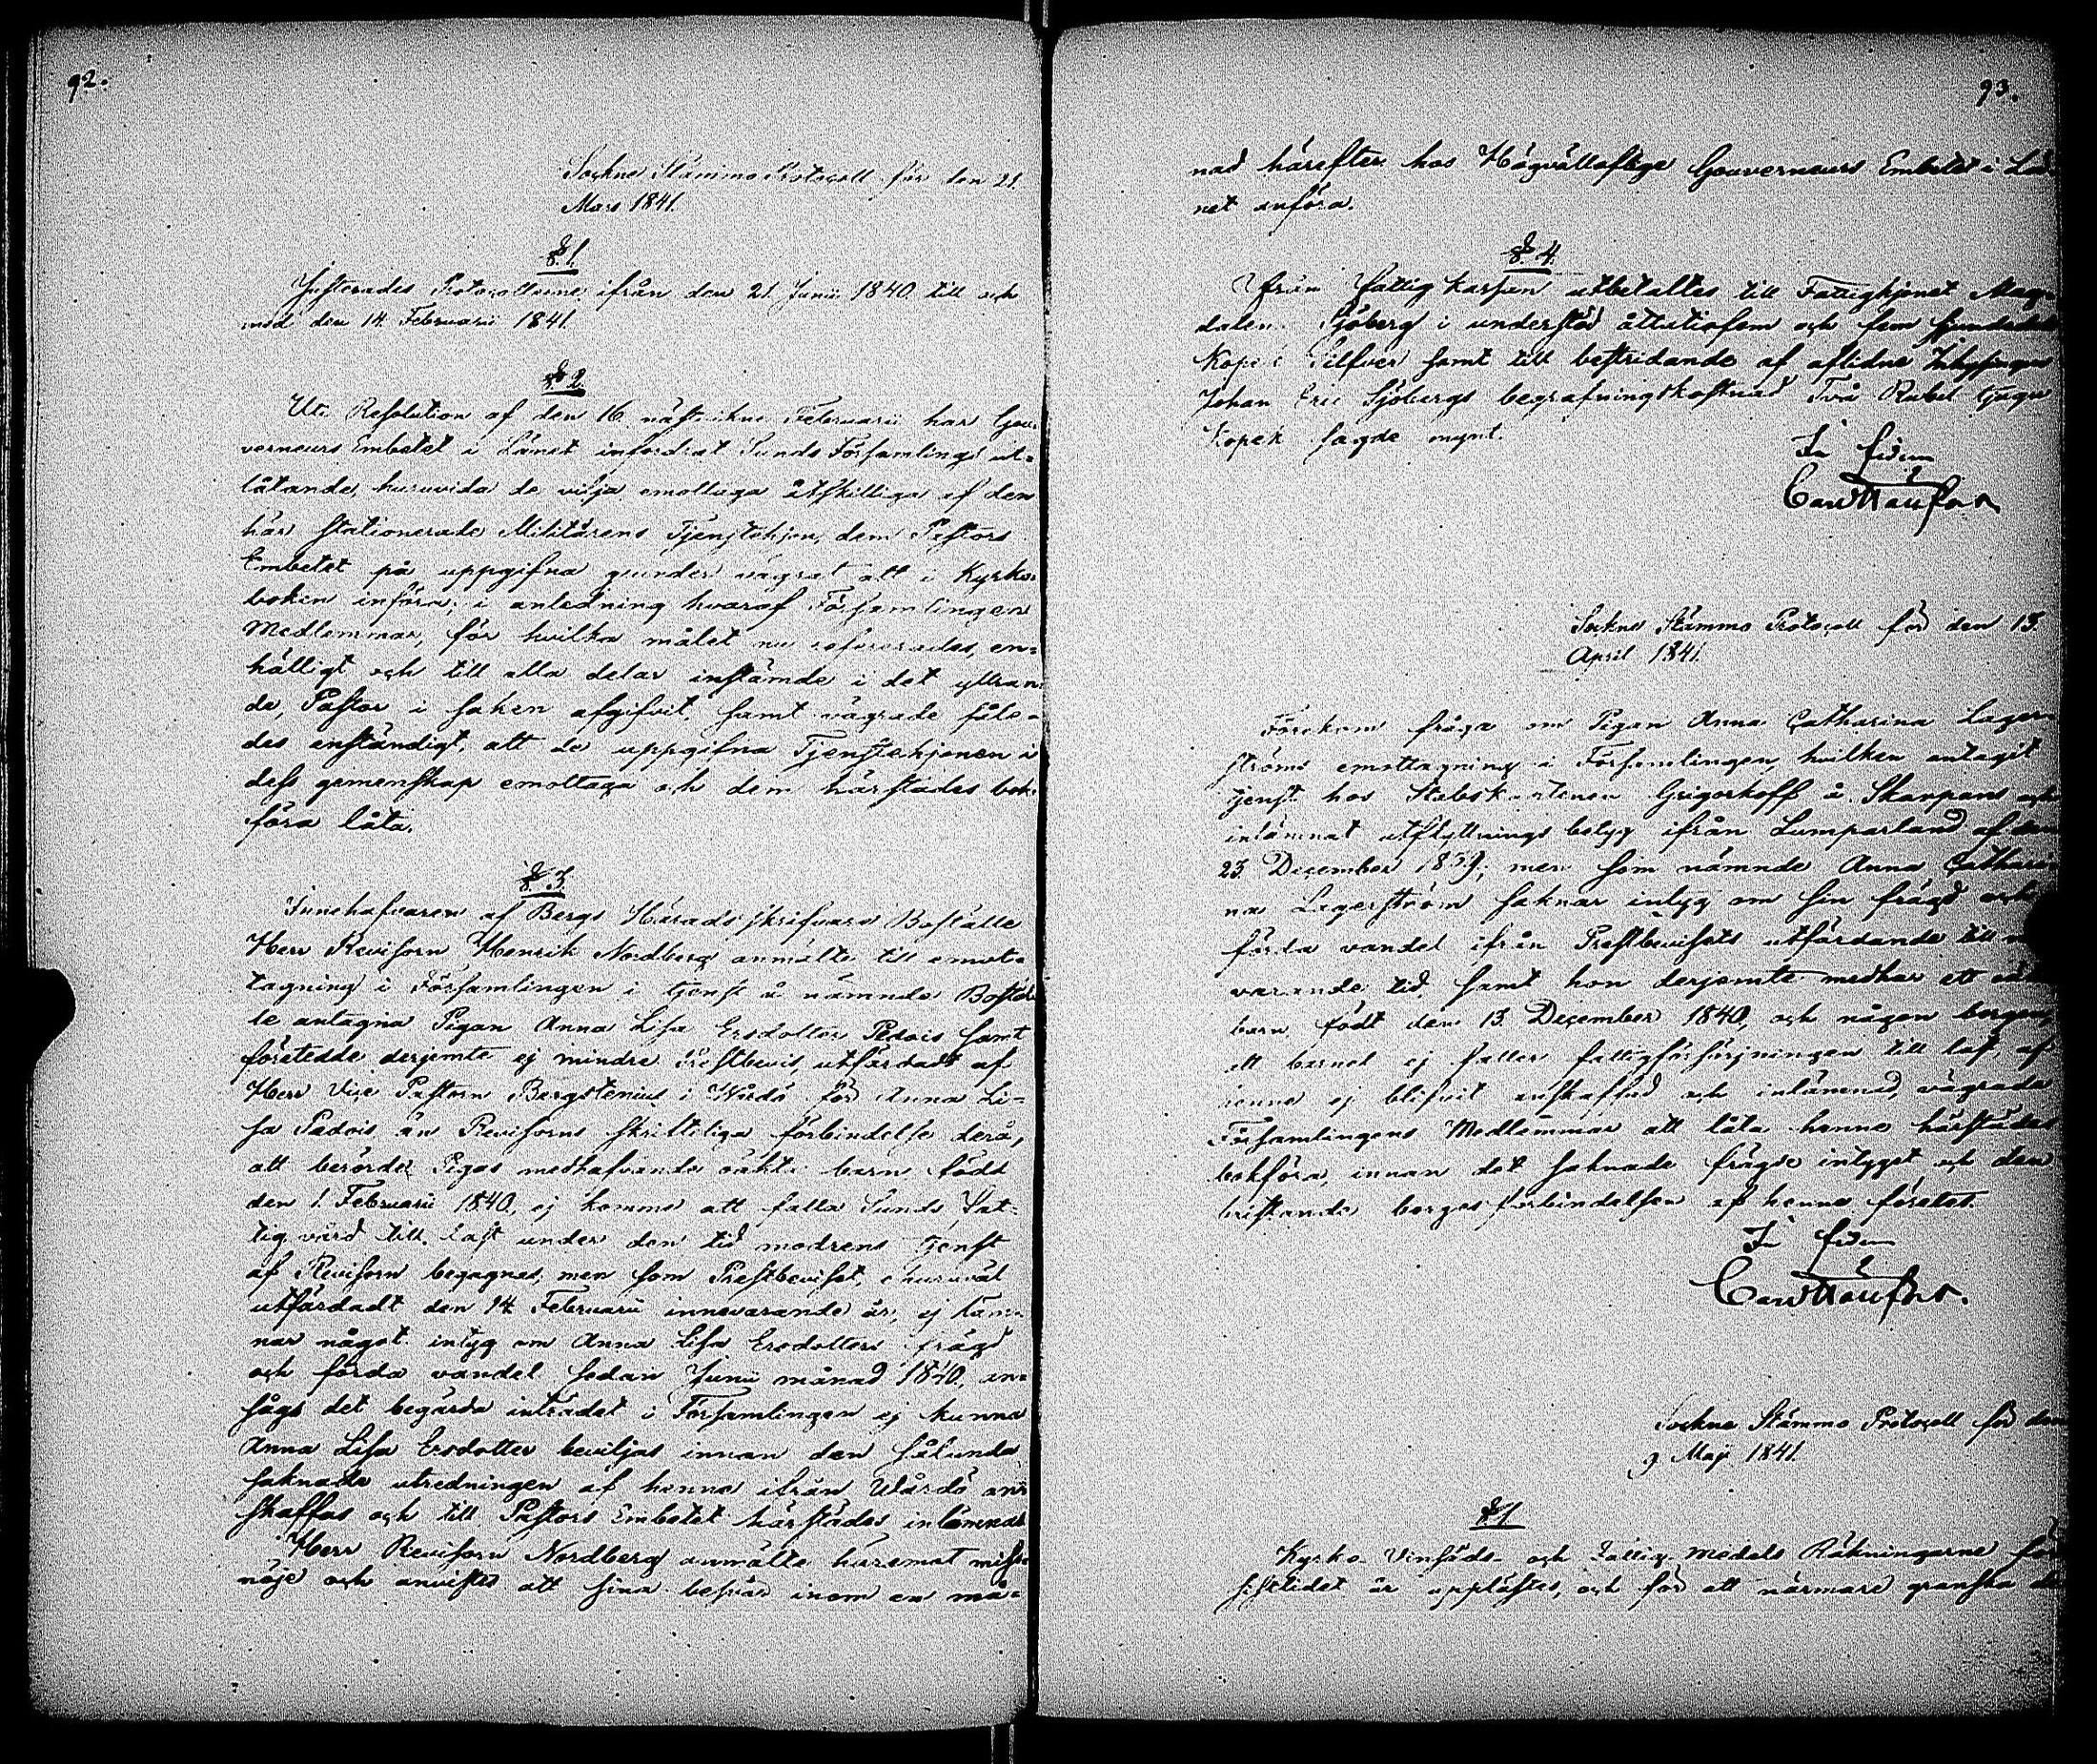 92.
Sockne Stämmo Protocoll för den 21.
Mars 1841.
§. 1.
Justerades Protocollerne ifrån den 21. Junii 1840. till och
med den 14. Februarii 1841.
§. 2.
Uti Resolution af den 16. näst Februarii har Gou-
verneurs Embetet i Länet infordrat Sunds Församlings ut-
låtande, huruvida de vilja emottaga åtskilliga af den
här stationerade Militärens Tjenstehjon, dem Pastors
Embetet på uppgifna grunder vägrat att i Kyrko-
boken införa; i anledning hvaraf Församlingens
Medlemmar, för hvilka målet nu refererades, en-
hälligt och till alla delar instämde i det yttran-
de, Pastor i saken afgifvit, samt vägrade såle-
des enständigt, att de uppgifna Tjenstehjonen i
dess gemenskap emottaga och dem härstädes bok-
föra låta.
§. 3.
Innehafvaren af Bergs Häradsskrifvare Boställe
Herr Revisorn Henrik Nordberg anmälte till emot-
tagning i Församlingen i tjenst å nämnde Bostäl-
le antagna Pigan Anna Lisa Ersdotter Pedois samt
företedde derjemte ej mindre Prestbevis, utfärdadt af
Herr Vice Pastorn Bergstenius i Wårdö för Anna Li-
sa Pedois än Revisorns skriftliga förbindelse derå,
att berörde Pigas medhafvande oäkta barn, födt
den 1. Februarii 1840, ej komme att falla Sunds Fat-
tigvård till last under den tid modrens tjenst
af Revisorn begagnas; men som Prestbeviset, churuväl
utfärdadt den 14. Februarii innevarande år, ej läm-
nar något intyg om Anna Lisa Ersdotters frägd
och förda vandel sedan Junii månad 1840, an-
sågs det begärda inträdet i Församlingen ej kunna
Anna Lisa Ersdotter beviljas innan den sålunda
saknade utredningen af henne ifrån Wårdö an-
skaffas och till Pastors Embetet härstädes inlämnas.
Herr Revisorn Nordberg anmälte häremot miss-
nöje och anvistes att sina besvär inom en må-
93.
nad härefter hos Högvällofliga Gouverneurs Embetet i Lä-
net anföra.
§. 4.
Ifrån Fattig Kassan utbetaltes till Fattighjonet Mag-
dalena Sjöberg i understöd åttatiofem och fem sjundedels
Kopek Silfver samt till bestridande af aflidne Inhysingen
Johan Eric Sjöbergs begrafningskostnad Två Rubel tjugu
Kopek sagde mynt.
In fidem
Sockne Stämmo Protocoll för den 13.
April 1841.
Förekom fråga om Pigan Anna Catharina Lager-
ströms emottagning i Församlingen, hvilken antagit
tjenst hos Stabskaptenen Grigorkoff å Skarpans och
inlämnat utflyttnings betyg ifrån Lumparland af den
23. December 1839; men som nämnde Anna Cathari-
na Lagerström saknar intyg om sin frägd och
förda vandel ifrån Prestbevisets utfärdande till
varande tid, samt hon derjemte medhar ett
barn, födt den 13. December 1840, och någon borgen,
att barnet ej faller fattigförsörjningen till last, af
henne ej blifvit anskaffad och inlämnad, vägrade
Församlingens Medlemmar att låta henne härstädes
bokföra, innan det saknade frägde intyget och den
bristande borgesförbindelsen af henne företes.
In fidem
Sockne Stämmo Protocoll för den
9. Maji 1841.
§. 1.
Kyrko- Vinsäds- och Fattig Medels Räkningarne för
sistlidet år upplästes, och för att närmare granska de